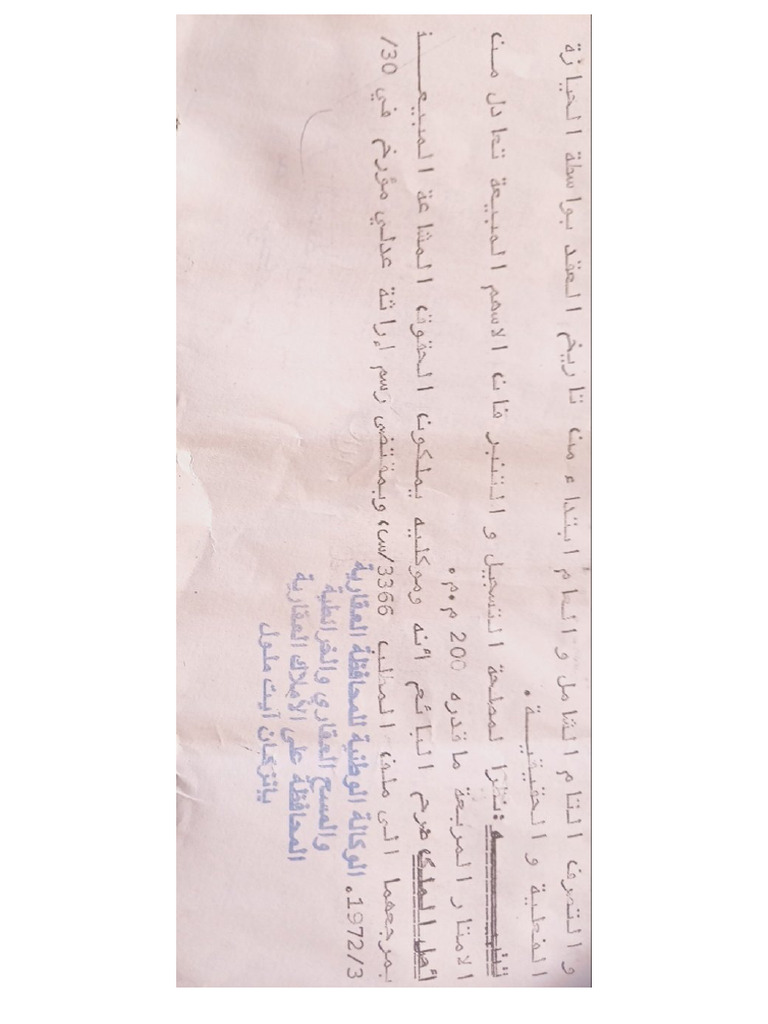 و التصرف التام الشامل و العام ابتداء من تاريخ العقد بواسطة الحيازة
الفعلية و الحقيقية.
تنبـــــــيه: نظرا لمصلحة التسجيل و التنبر فان الاسهم المبيعة تعادل من
الامتار المربعة ما قدره 200 م.م.
أصل الملك صرح البائع أنه وموكليه يملكون الحقوق المشاعة المبيعــــة
بمرجعهما الى ملف المطلب 3366/س، وبمقتضى رسم إراثة عدلي مؤرخ في 30/
1972/3.
الوكالة الوطنية للمحافظة العقارية
والمسح العقاري والخرائطية
المحافظة على الأملاك العقارية
بإنزكان آيت ملول